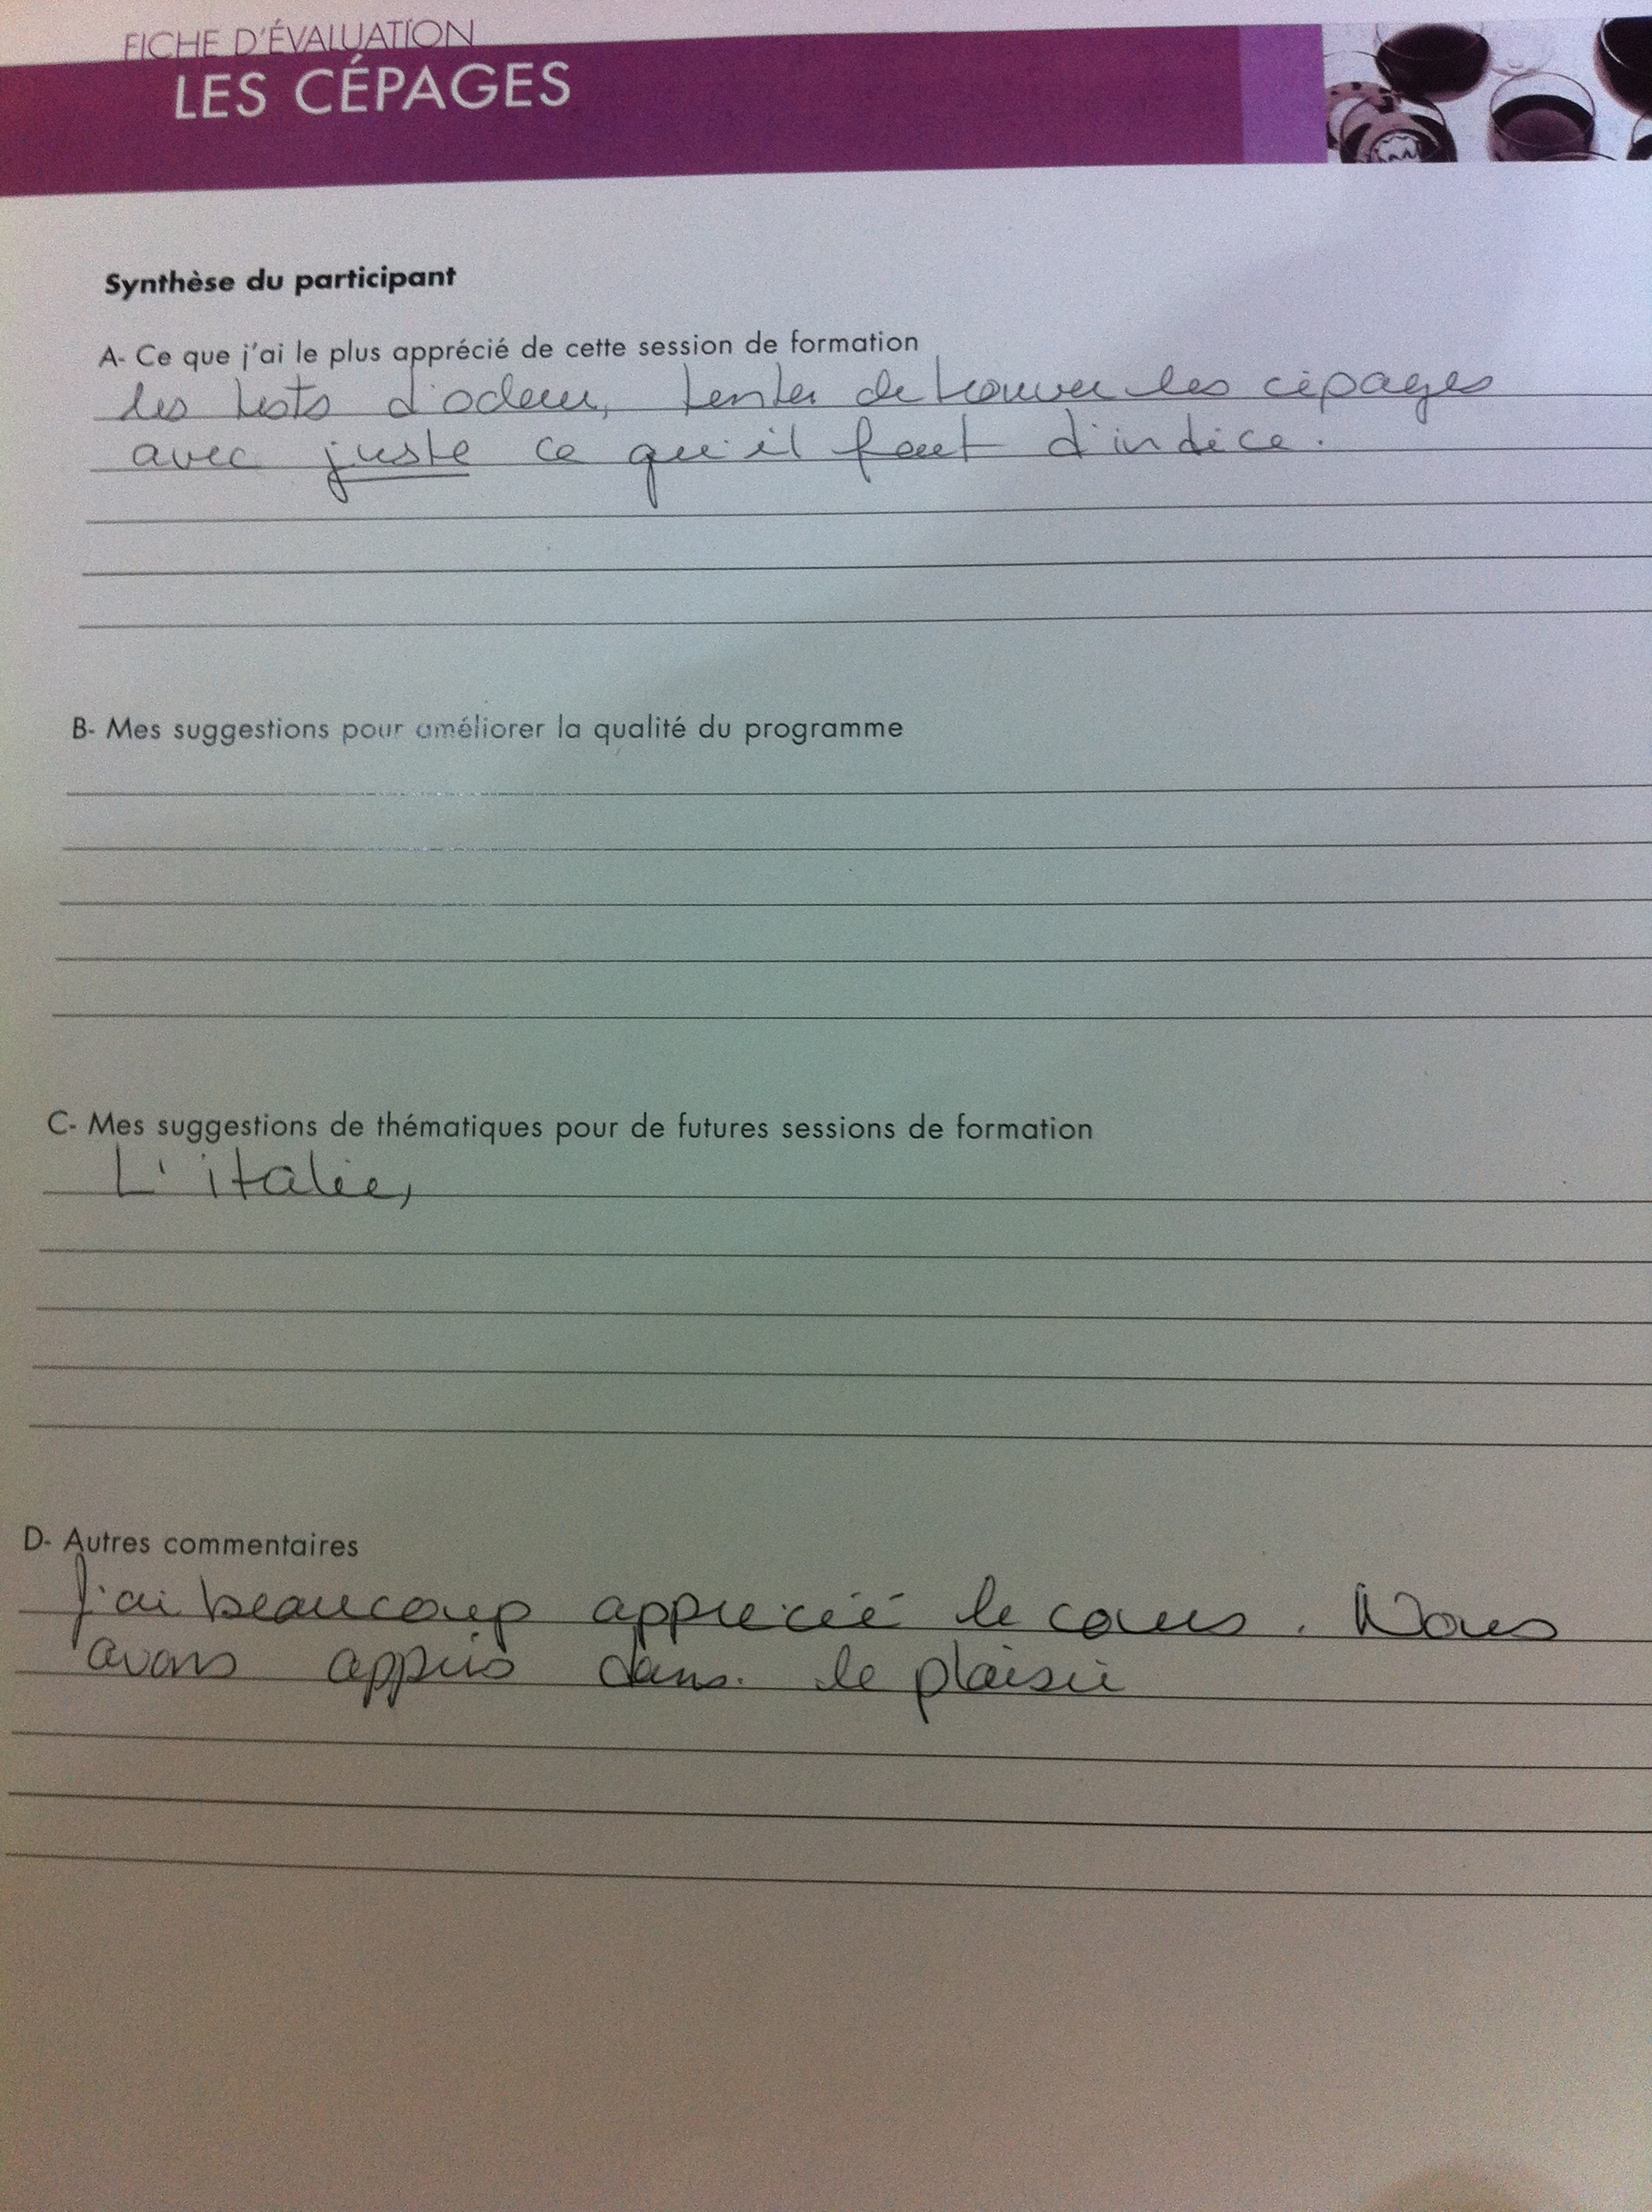 FICHE D'ÉVALUATION
LES CÉPAGES
Synthèse du participant
A- Ce que j'ai le plus apprécié de cette session de formation
les tests d'odeur, tenter de trouver les cépages
avec juste ce qu'il faut d'indice.
B- Mes suggestions pour améliorer la qualité du programme
C- Mes suggestions de thématiques pour de futures sessions de formation
L'italie,
D- Autres commentaires
J'ai beaucoup apprécié le cours. Nous
avons appris dans le plaisir